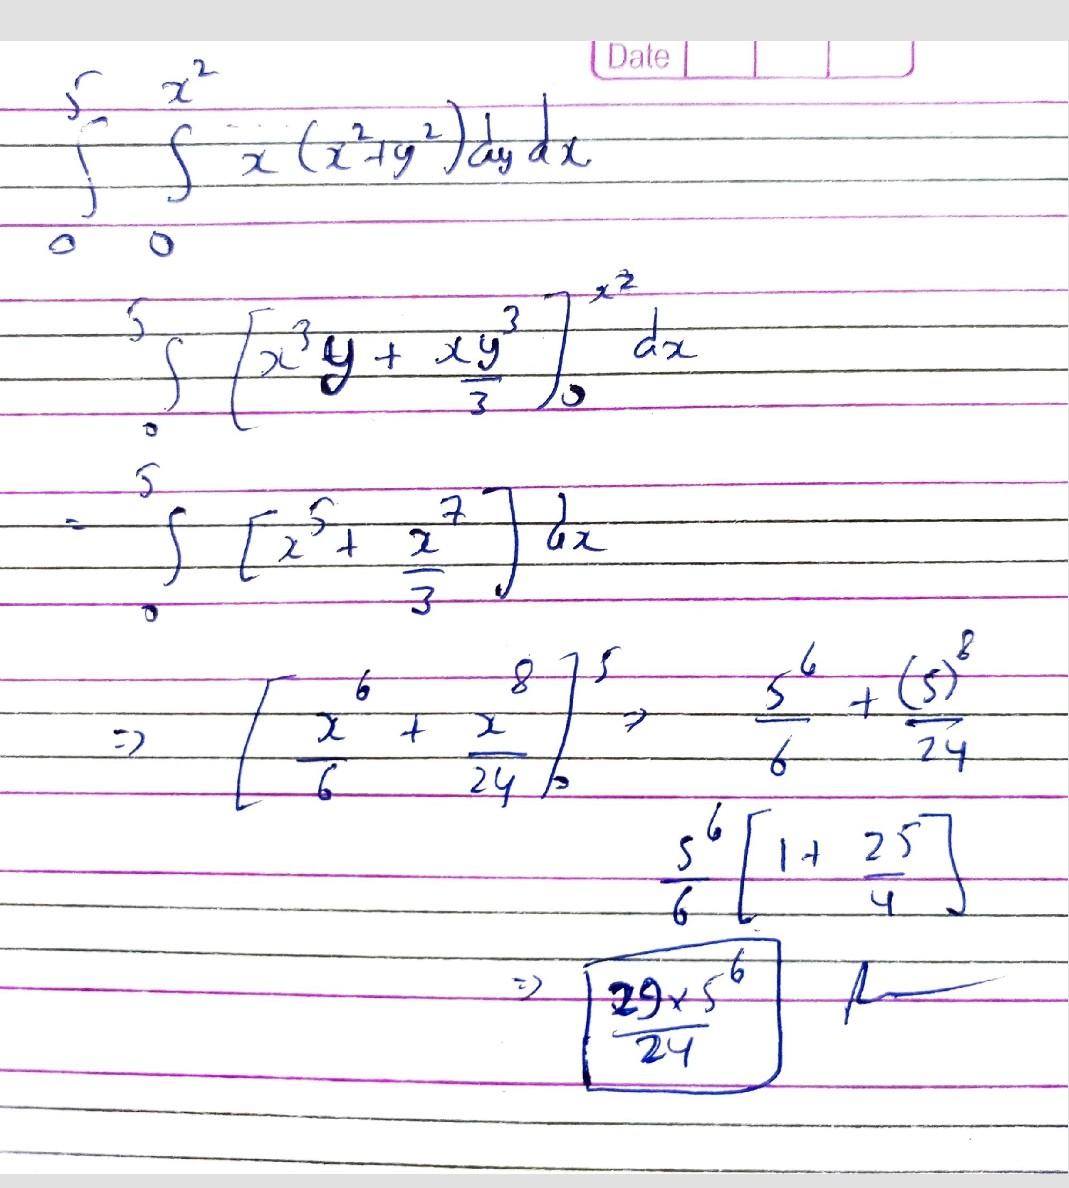 Date
∫₀⁵ ∫₀^{x²} x (x²+y²) dy dx
∫₀⁵ [x³y + xy³/3]₀^{x²} dx
= ∫₀⁵ [x⁵ + x⁷/3] dx
=> [x⁶/6 + x⁸/24]₀⁵ => 5⁶/6 + (5)⁸/24
5⁶/6 [1 + 25/4]
=> 29×5⁶/24